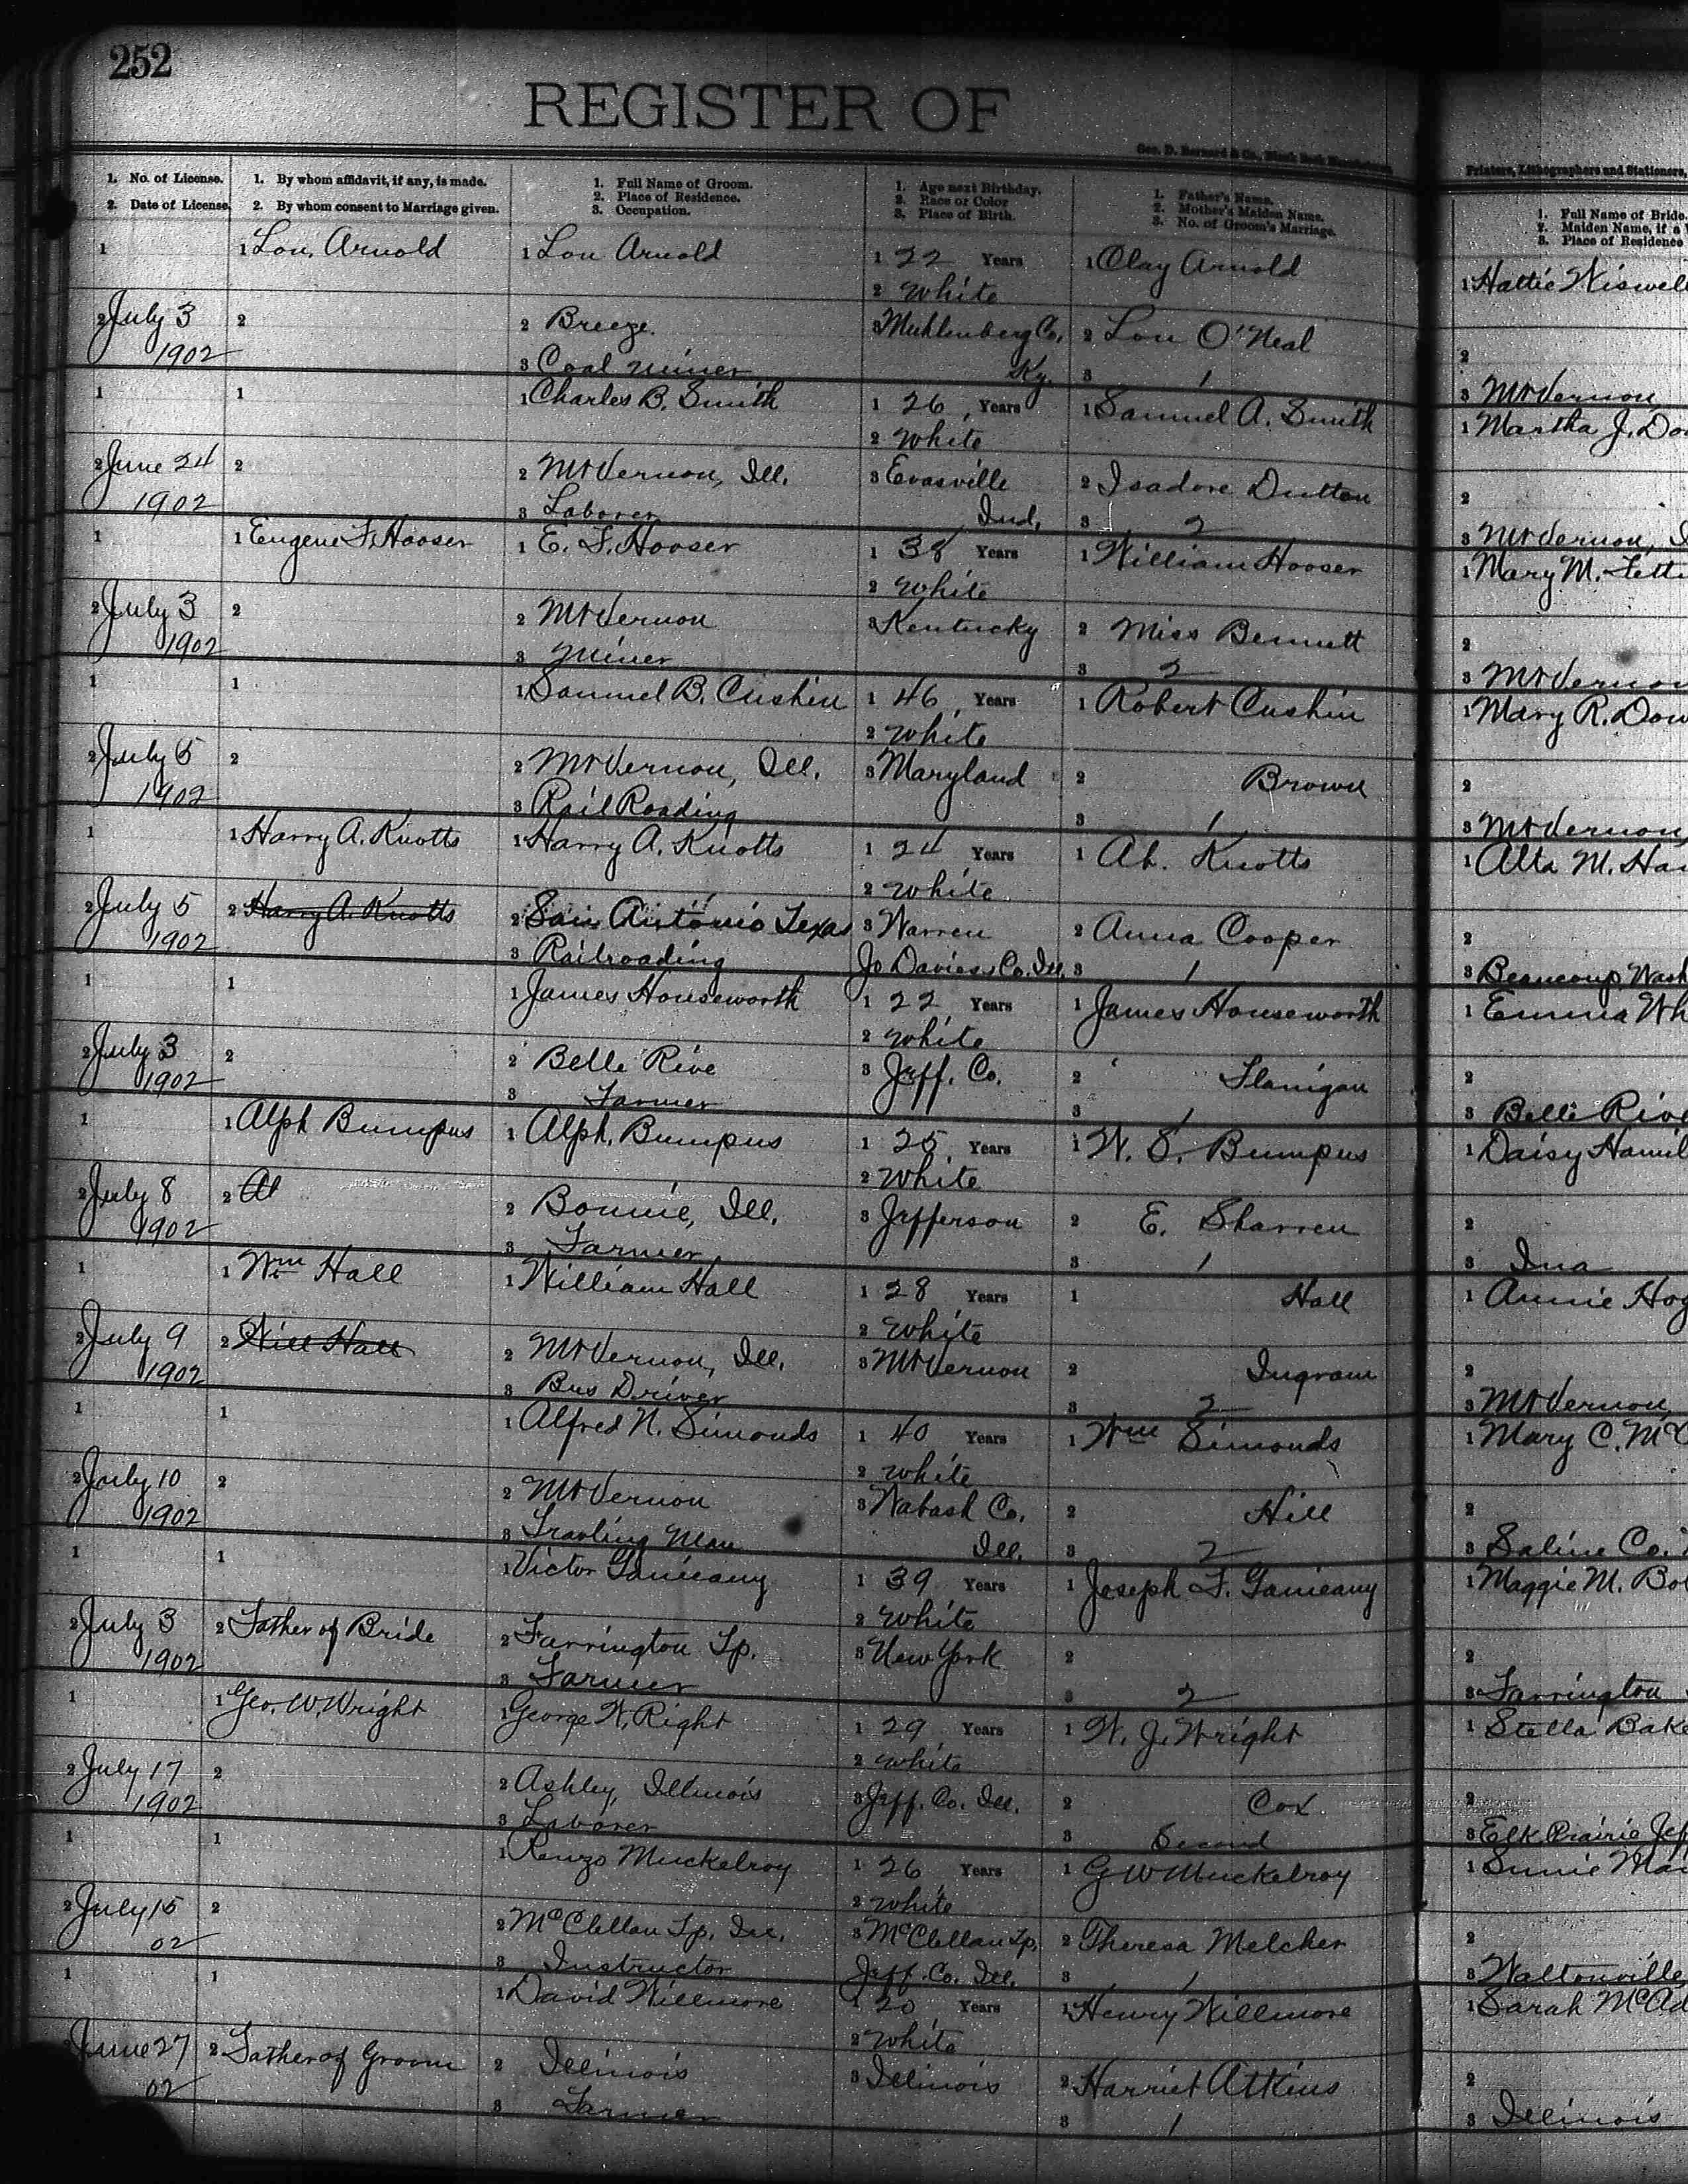 252
REGISTER OF
Geo. D. Barnard & Co., Blank Book Manufacturers,
Printers, Lithographers and Stationers,
1. No. of License.
2. Date of License.
1. By whom affidavit, if any, is made.
2. By whom consent to Marriage given.
1. Full Name of Groom.
2. Place of Residence.
3. Occupation.
1. Age next Birthday.
2. Race or Color
3. Place of Birth.
1. Father's Name.
2. Mother's Maiden Name.
3. No. of Groom's Marriage.
1. Full Name of Bride.
2. Maiden Name, if a
3. Place of Residence
1 1 Lon. Arnold 1 Lon Arnold 1 22 Years 1 Clay Arnold 1 Hattie Wiswel
2 White
2 July 3 2 2 Breeze. 3 Muhlenberg Co. 2 Lou O'Neal 2
1902 3 Coal miner Ky. 3 1 3 Mt Vernon
1 1 1 Charles B. Smith 1 26 Years 1 Samuel A. Smith 1 Martha J. Do
2 White
2 June 24 2 2 Mt Vernon, Ill. 3 Evasville 2 Isadore Dutton 2
1902 3 Laborer Ind. 3 2 3 Mt Vernon,
1 1 Eugene F. Hooser 1 E. F. Hooser 1 38 Years 1 William Hooser 1 Mary M. Fett
2 White
2 July 3 2 2 Mt Vernon 3 Kentucky 2 Miss Bennett 2
1902 3 Miner 3 2 3 Mt Vernon
1 1 1 Samuel B. Cushin 1 46 Years 1 Robert Cushin 1 Mary R. Dow
2 White
2 July 5 2 2 Mt Vernon, Ill. 3 Maryland 2 Brown 2
1902 3 Rail Roading 3 1 3 Mt Vernon,
1 1 Harry A. Knotts 1 Harry A. Knotts 1 24 Years 1 Ab. Knotts 1 Alta M. Ha
2 White
2 July 5 2 Harry A. Knotts 2 San Antonio Texas 3 Warren 2 Anna Cooper 2
1902 3 Railroading Jo Davies Co. Ill. 3 1 3 Beaucoup Wash
1 1 1 James Houseworth 1 22 Years 1 James Houseworth 1 Emma Wh
2 White
2 July 3 2 2 Belle Rive 3 Jeff. Co. 2 Flanigan 2
1902 3 Farmer 3 1 3 Belle Rive
1 1 Alph Bumpus 1 Alph. Bumpus 1 25 Years 1 W. S. Bumpus 1 Daisy Hamil
2 White
2 July 8 2 Al 2 Bonnie, Ill. 3 Jefferson 2 E. Sharren 2
1902 3 Farmer 3 1 3 Ina
1 1 Wm Hall 1 William Hall 1 28 Years 1 Hall 1 Annie Hog
2 White
2 July 9 2 Will Hall 2 Mt Vernon, Ill. 3 Mt Vernon 2 Ingram 2
1902 3 Bus Driver 3 2 3 Mt Vernon,
1 1 1 Alfred N. Simonds 1 40 Years 1 Wm Simonds 1 Mary C. Mc
2 White
2 July 10 2 2 Mt Vernon 3 Wabash Co. 2 Hill 2
1902 3 Travling Man Ill. 3 2 3 Saline Co.
1 1 1 Victor Ganieany 1 39 Years 1 Joseph F. Ganieany 1 Maggie M. Bo
2 White
2 July 3 2 Father of Bride 2 Farrington Tp. 3 New York 2 2
1902 3 Farmer 3 2 3 Farrington
1 1 Geo. W. Wright 1 George W. Right 1 29 Years 1 W. J. Wright 1 Stella Bake
2 White
2 July 17 2 2 Ashley, Illinois 3 Jeff. Co. Ill. 2 Cox 2
1902 3 Laborer 3 Second 3 Elk Prairie Jef
1 1 1 Renzo Muckelroy 1 26 Years 1 G W Muckelroy 1
2 White
2 July 15 2 2 McClellan Tp. Ill. 3 McClellan Tp. 2 Theresa Melcher 2
02 3 Instructor Jeff. Co. Ill. 3 1 3 Waltonville
1 1 1 David Willmore 1 20 Years 1 Henry Willmore 1 Sarah McAd
2 White
June 27 2 Father of Groom 2 Illinois 3 Illinois 2 Harriet Atkins 2
02 3 Farmer 3 1 3 Illinois